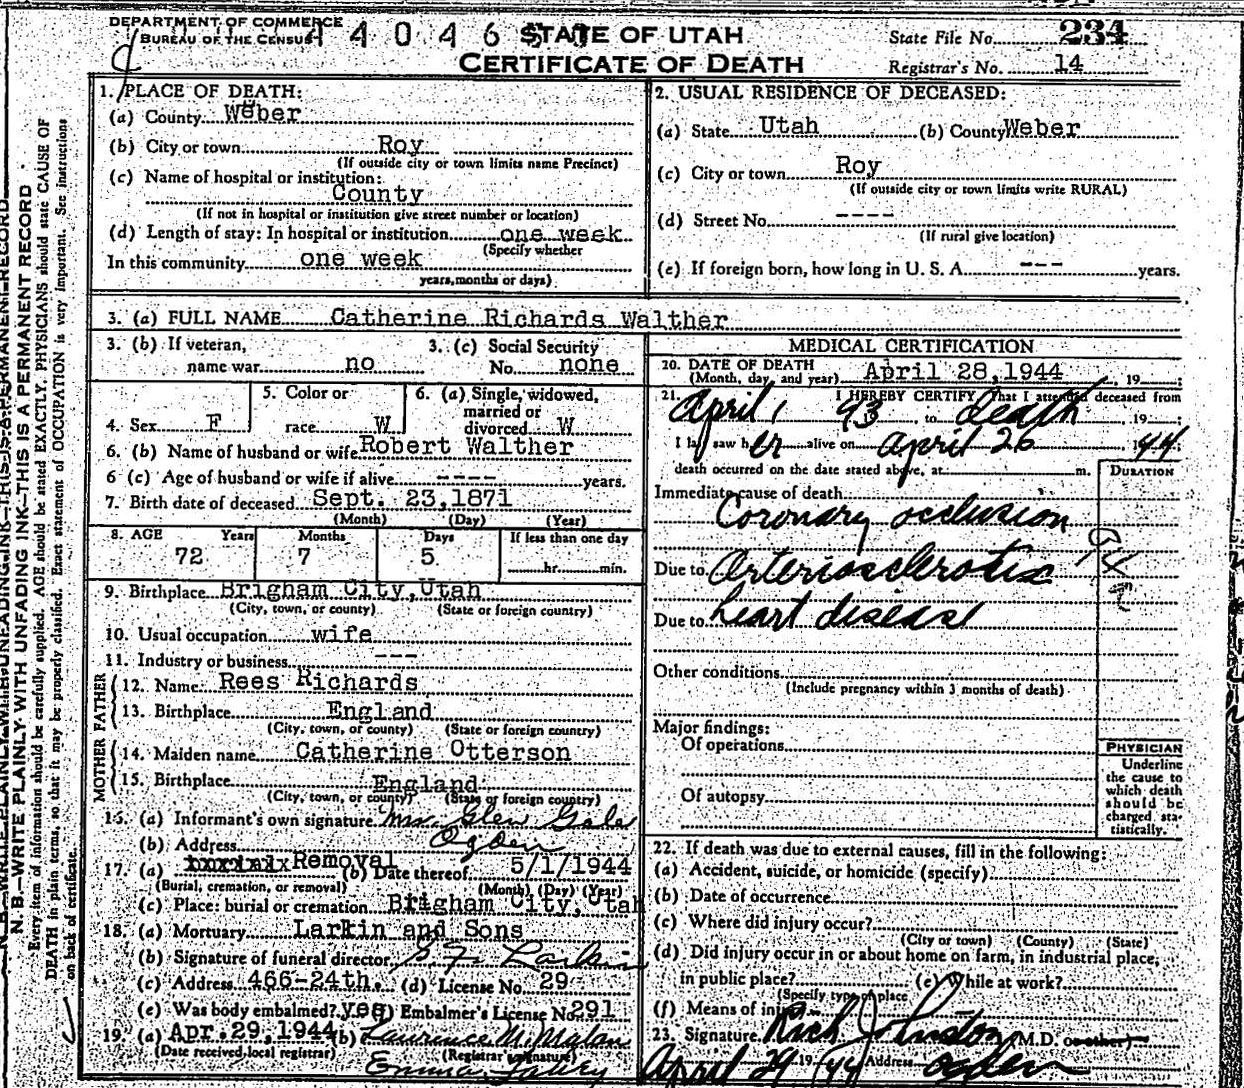 DEPARTMENT OF COMMERCE
BUREAU OF THE CENSUS
4 4 0 4 6
STATE OF UTAH
CERTIFICATE OF DEATH
State File No. 234
Registrar's No. 14
N. B.—WRITE PLAINLY WITH UNFADING INK—THIS IS A PERMANENT RECORD
Every item of information should be carefully supplied. AGE should be stated EXACTLY. PHYSICIANS should state CAUSE OF
DEATH in plain terms, so that it may be properly classified. Exact statement of OCCUPATION is very important. See instructions
on back of certificate.
1. PLACE OF DEATH:
(a) County Weber
(b) City or town Roy
(If outside city or town limits name Precinct)
(c) Name of hospital or institution:
County
(If not in hospital or institution give street number or location)
(d) Length of stay: In hospital or institution one week
(Specify whether
In this community one week
years, months or days)
2. USUAL RESIDENCE OF DECEASED:
(a) State Utah (b) County Weber
(c) City or town Roy
(If outside city or town limits write RURAL)
(d) Street No. ----
(If rural give location)
(e) If foreign born, how long in U. S. A. --- years.
3. (a) FULL NAME Catherine Richards Walther
3. (b) If veteran,
name war no
3. (c) Social Security
No. none
4. Sex F
5. Color or
race W
6. (a) Single, widowed,
married or
divorced W
6. (b) Name of husband or wife Robert Walther
6 (c) Age of husband or wife if alive ---- years.
7. Birth date of deceased Sept. 23,1871
(Month) (Day) (Year)
8. AGE Years Months Days If less than one day
72 7 5 hr. min.
9. Birthplace Brigham City,Utah
(City, town, or county) (State or foreign country)
10. Usual occupation wife
11. Industry or business ---
FATHER
12. Name Rees Richards
13. Birthplace England
(City, town, or county) (State or foreign country)
MOTHER
14. Maiden name Catherine Otterson
15. Birthplace England
(City, town, or county) (State or foreign country)
16. (a) Informant's own signature Mrs. Glen Gale
(b) Address Ogden
17. (a) Removal (b) Date thereof 5/1/1944
(Burial, cremation, or removal) (Month) (Day) (Year)
(c) Place: burial or cremation Brigham City, Utah
18. (a) Mortuary Larkin and Sons
(b) Signature of funeral director Larkin
(c) Address 466-24th. (d) License No. 29
(e) Was body embalmed? yes Embalmer's License No. 291
19. (a) Apr. 29, 1944 (b) Laurence M.
(Date received local registrar) (Registrar's signature)
Emma
MEDICAL CERTIFICATION
20. DATE OF DEATH
(Month, day, and year) April 28,1944, 19 ;
21. I HEREBY CERTIFY That I attended deceased from
April, 43, to death, 19 ;
I last saw her alive on April 26 1944
death occurred on the date stated above, at m.
DURATION
Immediate cause of death
Coronary occlusion
Due to Arteriosclerotic
Due to heart disease
Other conditions
(Include pregnancy within 3 months of death)
Major findings:
Of operations
Of autopsy
PHYSICIAN
Underline
the cause to
which death
should be
charged sta-
tistically.
22. If death was due to external causes, fill in the following:
(a) Accident, suicide, or homicide (specify)
(b) Date of occurrence
(c) Where did injury occur?
(City or town) (County) (State)
(d) Did injury occur in or about home on farm, in industrial place,
in public place? (e) While at work?
(Specify type of place
(f) Means of injury
23. Signature Rich Johnston (M.D. or other)
April 29 1944 Address Ogden